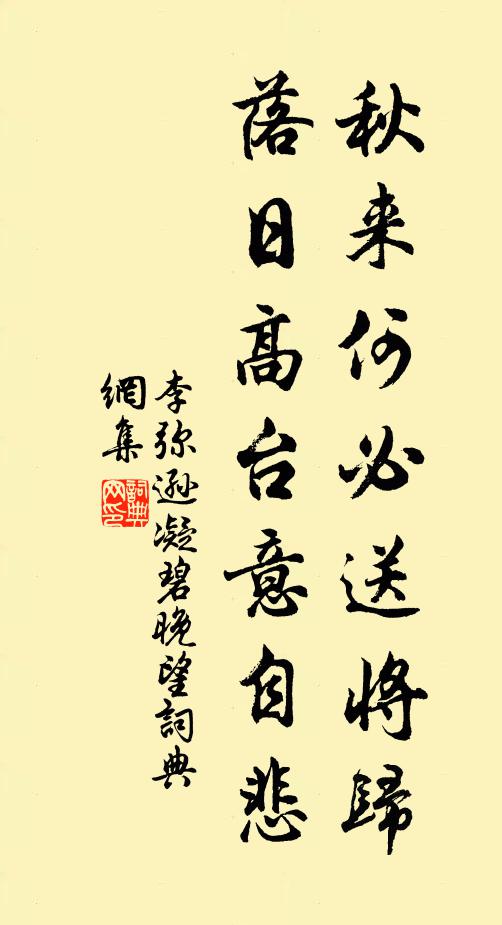 秋来何必送將歸
落日高台意自悲
李弥遜凝碧晚望詞典
網集
詞典
网印